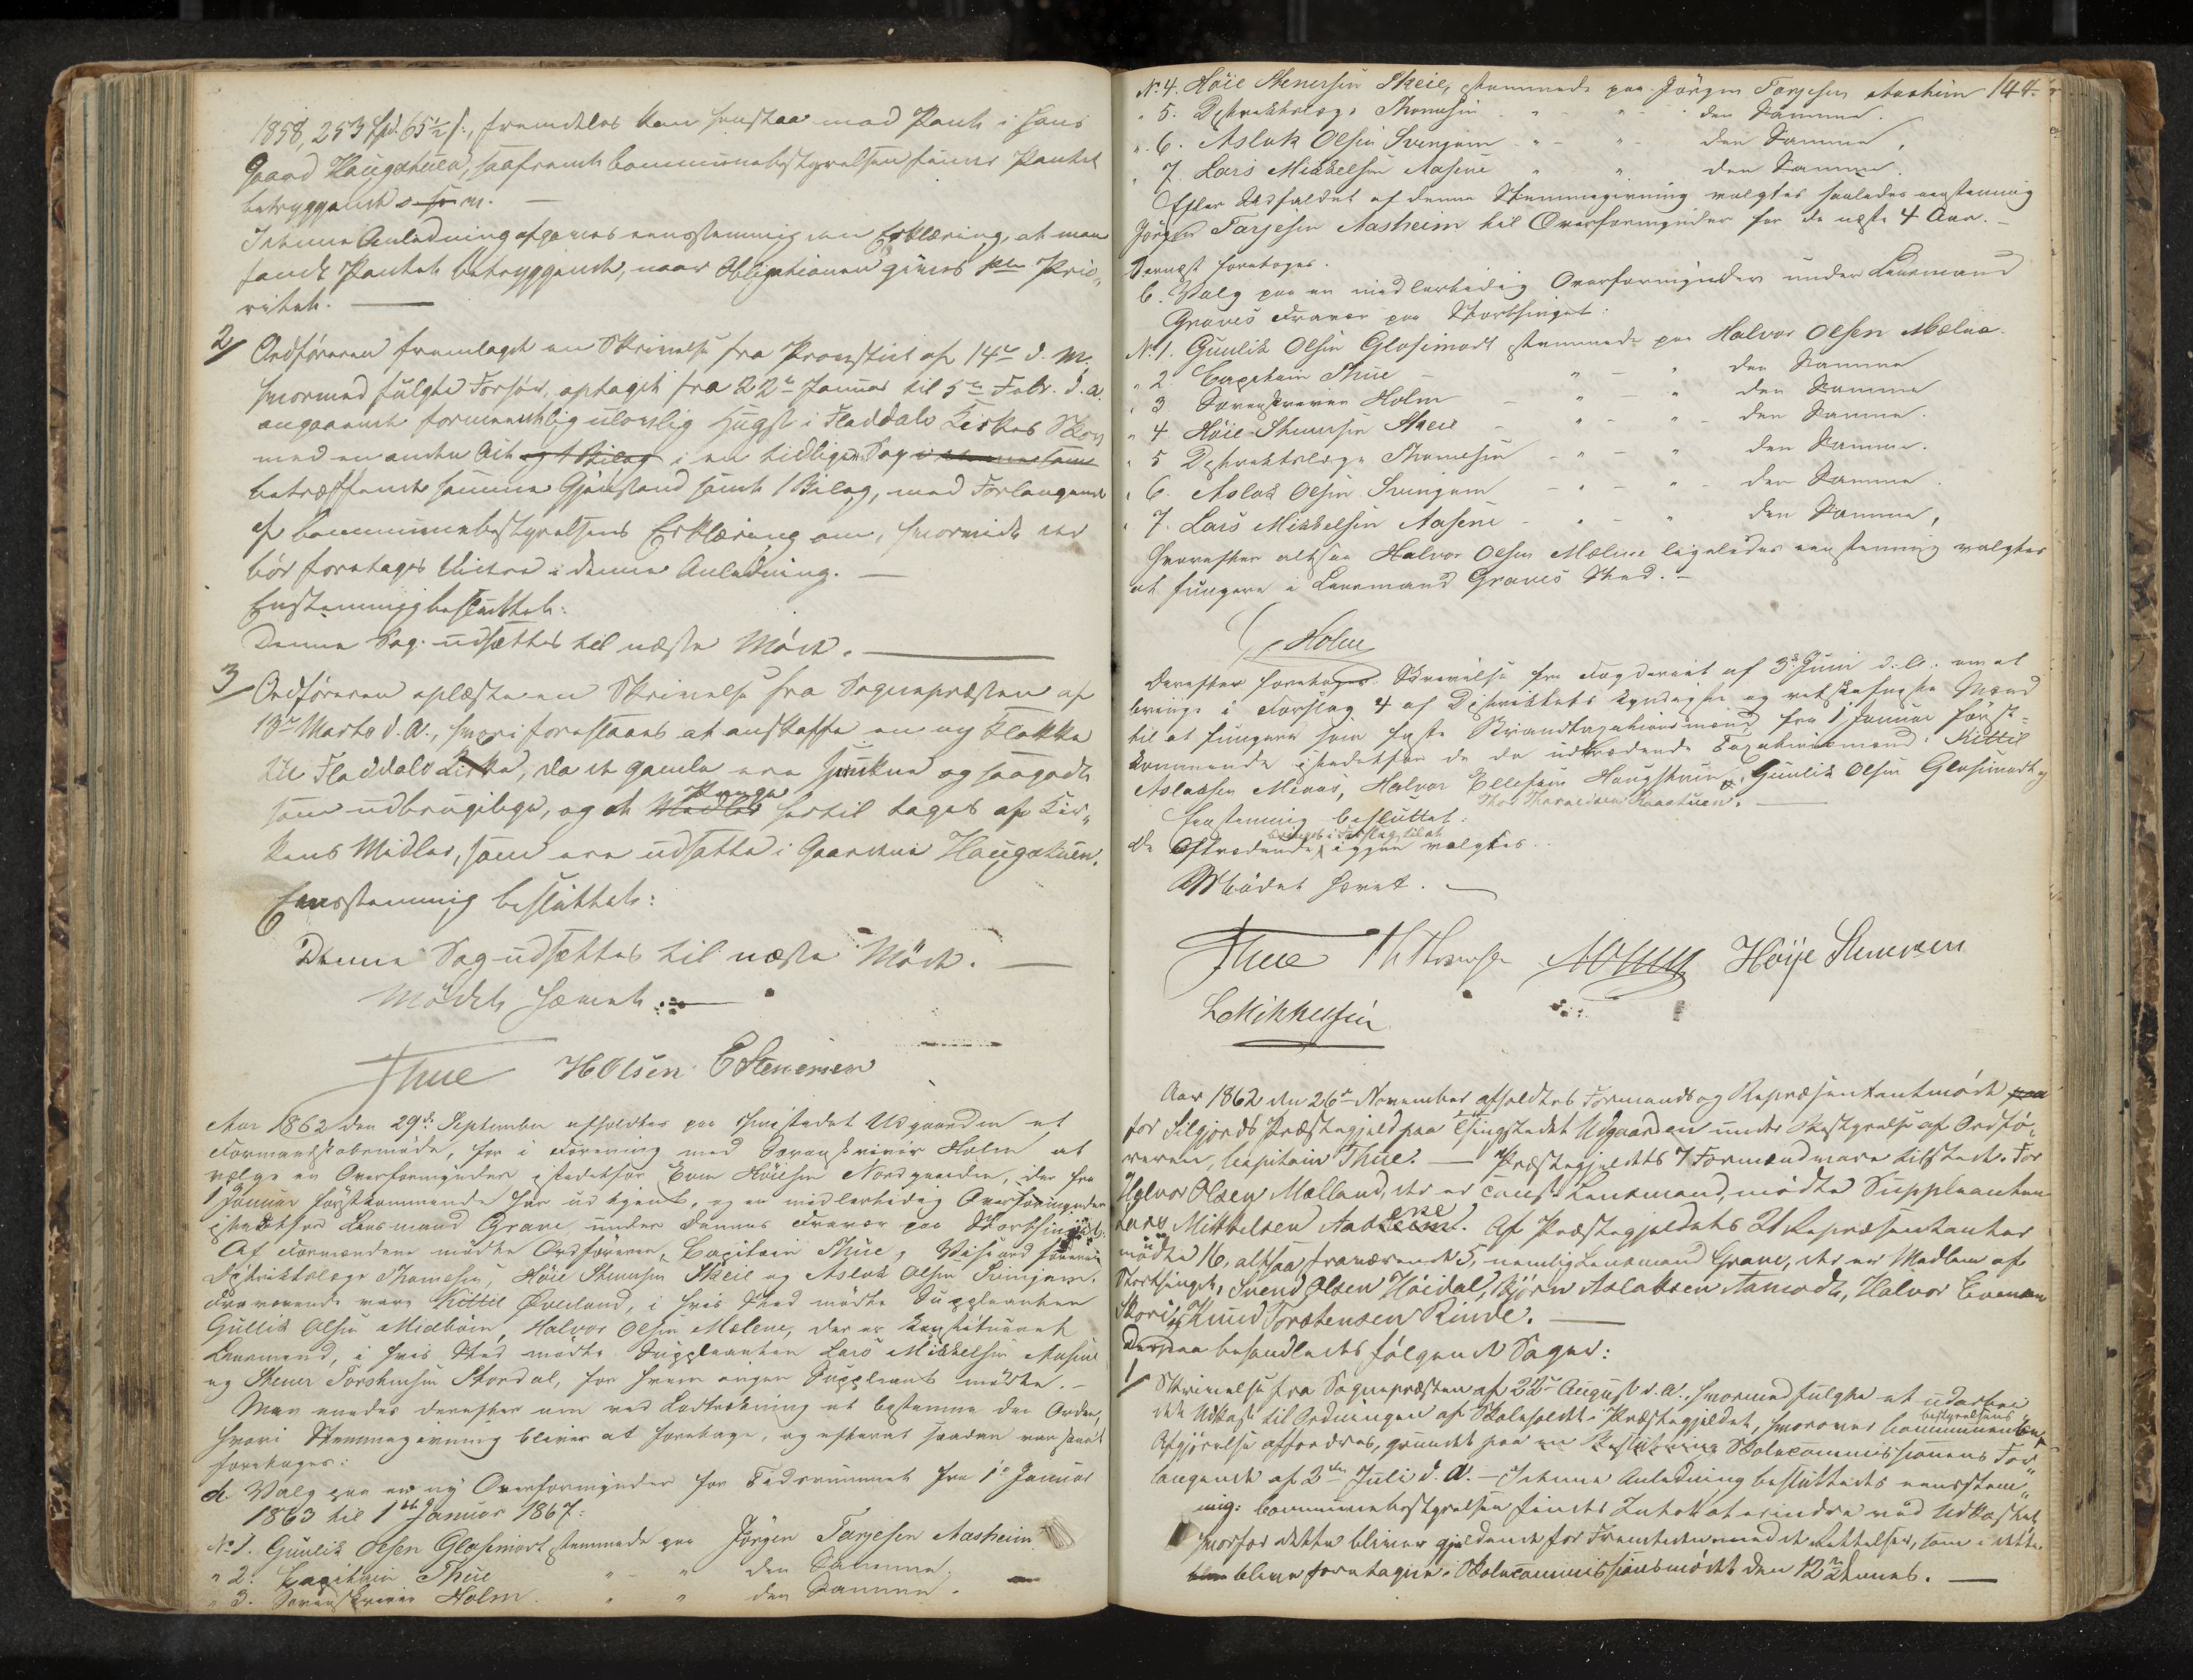 1858, 253 Spd. 65½ s., fremdeles kan henstaa mod Pant i hans
Gaard Haugatuen, saafremt Communebestyrelsen finder Pantet
betryggende
I denne Anledning afgaves eenstemmig den Erklæring, at man
fandt Pantet betryggende, naar Obligationen gives 1ste Prio„
ritet. —
2/ Ordføreren fremlagde en Skrivelse fra Provstiet af 14de d. M.
hvormed fulgte Forhør, optaget fra 22de Januar til 5te Febr. d. a.
angaaende formeentlig ulovlig Hugst i Fladdals Kirkes Skov
med en anden Act og 1 Bilag i en tidligere Sag
betræffende samme Gjenstand samt 1 Bilag, med Forlangende
af Communebestyrelsens Erklæring om, hvorvidt der
bør foretages Videre i denne Anledning. —
Eenstemmig besluttet:
Denne Sag udsættes til næste Møde. —
3/ Ordføreren oplæste en Skrivelse fra Sognepræsten af
13de Marts d. A., hvori foreslaaes at anskaffe en ny Klokke
til Fladdals Kirke, da de gamle ere sprukne og saagodt
som udbrugelige, og at Midler Penge hertil tages af Kir„
kens Midler, som ere udsatte i Gaarden Haugatuen.
Eensstemmig besluttet:
Denne Sag udsættes til næste Møde. —
Mødet hævet. —
Thue HOlsen EStenersen
Aar 1862 den 29de September afholdtes paa Thingstedet Udgaarden et
Formandskabsmøde, for i Forening med Sorenskriver Holm at
vælge en Overformynder istedetfor Even Høiesen Nordgaarden, der fra
1 Januar førstkommende har udtjent, og en midlertidig Overformynder
istedetfor Lensmand Grave under dennes Fravær paa Storthinget.
Af Formændene mødte Ordføreren, Capitain Thue, Viseordføreren
Distriktslæge Thomesen, Høie Stenersen Skeie og Aslak Olsen Svingom.
Fraværende vare Kittil Øverland, i hvis Sted mødte Suppleanten
Gullik Olsen Midbøen, Halvor Olsen Mælene, der er konstitueret
Lensmand, i hvis Sted mødte Suppleanten Lars Mikkelsen Aasene
og Stener Torstensen Stordal, for hvem ingen Suppleant mødte. –
Man enedes derefter om ved Lodtrækning at bestemme den Orden,
hvori Stemmegivning bliver at foretage, og efterat saadan var skeet
foretages:
a Valg paa en ny Overformynder for Tidsrummet fra 1ste Januar
1863 til 1ste Januar 1867:
No 1. Gunlik Olsen Glosimodt stemmede paa Jørgen Tarjesen Aasheim
" 2. Capitain Thue " – " den Samme.
" 3. Sorenskriver Holm " " den Samme.
No 4. Høie Stenersen Skeie, stemmede paa Jörgen Tarjesen Aasheim 144.
" 5. Distriktslæge Thomesen " – " den Samme.
" 6. Aslak Olsen Svingom " – " den Samme,
" 7. Lars Mikkelsen Aasene " " den Samme.
Efter Udfaldet af denne Stemmegivning valgtes saaledes eenstemmig
Jørgen Tarjesen Aasheim til Overformynder for de næste 4 Aar. –
Dernæst foretages.
b. Valg paa en midlertidig Overformynder under Lensmand
Graves Fravær paa Storthinget:
No 1. Gunlik Olsen Glosimodt stemmede paa Halvor Olsen Mælene.
" 2. Capitain Thue – " – " den Samme
" 3 Sorenskriver Holm – " – " den Samme
" 4 Høie Stenersen Skeie – " – " den Samme.
" 5 Distriktslæge Thomesen – " – " den Samme.
" 6. Aslak Olsen Svingom – " – " den Samme.
" 7. Lars Mikkelsen Aasene – " – " den Samme,
Hvorefter altsaa Halvor Olsen Mælene ligeledes eenstemmig valgtes
at fungere i Lensmand Graves Sted. –
Holm
Derefter foretages Skrivelse fra Fogderiet af 3die Juni d. A. om at
bringe i Forslag 4 af Distriktets kyndigste og retskafneste Mænd
til at fungere som faste Brandtaxationsmænd fra 1 Januar først-
kommende istedetfor de da udtrædende Taxationsmænd Kittil
Aslaksen Moens, Halvor Ellefsen Haugstuen, Gunlik Olsen Glosimodt og
Thor Thoresen Raastuen. —
Eenstemmig besluttet:
De Aftrædende bringes i Forslag til at igjen valgtes.
Mødet hævet. —
Thue Th Thomesen AOlsen Höije Stenersen
LMikkelsen
Aar 1862 den 26de November afholdtes Formands og Repræsentantmøde paa
for Silgjords Præstegjeld paa Thingstedet Udgaarden under Bestyrelse af Ordfø„
reren, Capitain Thue. — Præstegjeldets 7 Formænd vare tilstede. For
Halvor Olsen Mælland, der er const. Lensmand, mødte Suppleanten
Lars Mikkelsen Aasene. Af Præstegjeldets 21 Repræsentanter
mødte 16, altsaa fraværende 5, nemlig Lensmand Grave, der er Medlem af
Storthinget, Svend Olsen Höidal, Björn Aslaksen Aamodt, Halvor Evensen
Skori og Knud Torstensen Rinde. —
Derpaa behandledes følgende Sager:
1/ Skrivelse fra Sognepræsten af 22de August d. A., hvormed fulgte et udarbei
det Udkast til Ordningen af Skoleholdet i Præstegjeldet, hvorover Communebe bestyrelsens
Afgjørelse affordres, grundet paa en Skolecommissionens For„
langende af 2den Juli d. A. – I denne Anledning besluttedes eensstem„
mig: Communebestyrelsen fandt Intet at erindre ved Udkastet
hvorfor dette bliver gjeldende for Fremtiden med de Rettelser, som i dette
bleve foretagne i Skolecommissionsmødet den 12te dennes. —